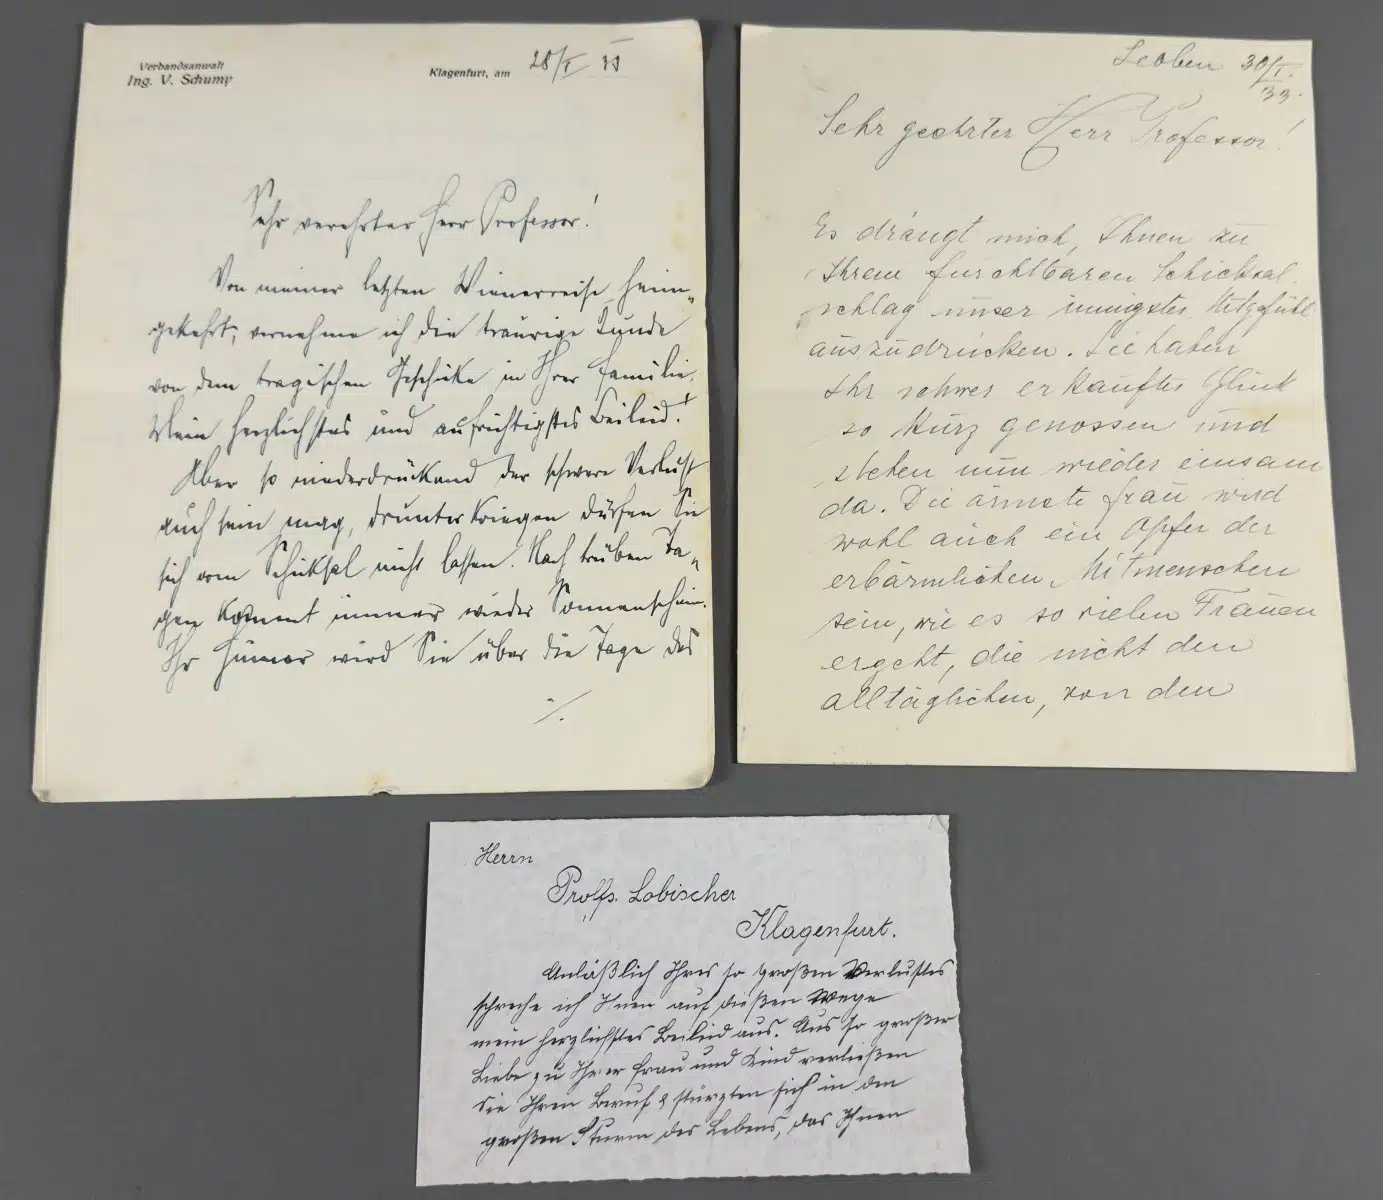 Verbandsanwalt
Ing. V. Schumy
Klagenfurt, am 28/I 33
Sehr verehrter Herr Professor!
Von meiner letzten Wienerreise heim-
gekehrt, vernehme ich die traurige Kunde
von dem tragischen Geschicke in Ihrer Familie.
Mein herzlichstes und aufrichtigstes Beileid!
Aber so niederdrückend der schwere Verlust
auch sein mag, drunterkriegen dürfen Sie
sich vom Schiksal nicht lassen. Nach trüben Ta-
gen kommt immer wieder Sonnenschein.
Ihr Humor wird Sie über die Tage des
./.
Leoben 30/I.
33.
Sehr geehrter Herr Professor!
Es drängt mich, Ihnen zu
Ihrem furchtbaren Schicksal
schlag unser innigstes Mitgefühl
auszudrücken. Sie haben
Ihr schwer erkauftes Glück
so kurz genossen und
stehen nun wieder einsam
da. Die ärmste Frau wird
wohl auch ein Opfer der
erbärmlichen Mitmenschen
sein, wie es so vielen Frauen
ergeht, die nicht den
alltäglichen, von den
Herrn
Profs. Lobischer
Klagenfurt.
Anläßlich Ihres so großen Verlustes
spreche ich Ihnen auf dießen Wege
mein herzlichstes Beileid aus. Aus so großer
Liebe zu Ihrer Frau und Kind verließen
Sie Ihren Beruf & stürzten sich in den
großen Sturm des Lebens, das Ihnen